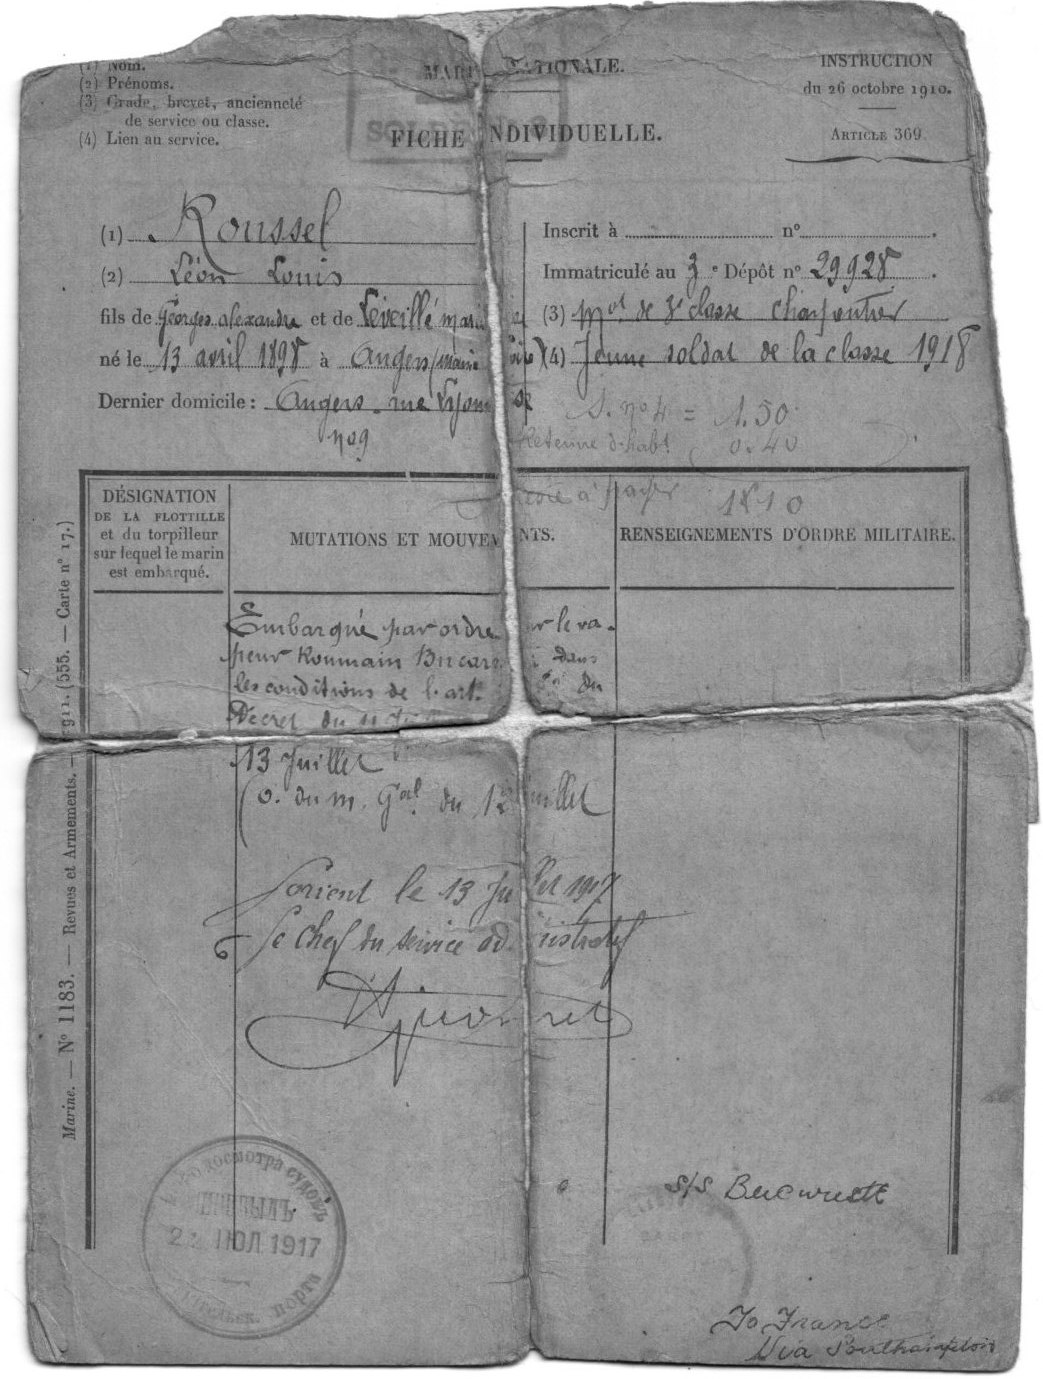 (1) Nom.
(2) Prénoms.
(3) Grade, brevet, ancienneté
de service ou classe.
(4) Lien au service.
MARI NATIONALE.
FICHE INDIVIDUELLE.
INSTRUCTION
du 26 octobre 1910.
ARTICLE 369
(1) Roussel
(2) Léon Louis
fils de Georges alexandre et de Léveillé
né le 13 avril 1898 à Angers
Dernier domicile : Angers rue
no 9
Inscrit à n°
Immatriculé au 3e Dépôt n° 29928
(3) Mot de 3e classe charpentier
(4) Jeune soldat de la classe 1918
S. no 4 = 1.50
Retenue d'habt 0.40
à payer 1810
DÉSIGNATION
DE LA FLOTTILLE
et du torpilleur
sur lequel le marin
est embarqué.
MUTATIONS ET MOUVEMENTS.
RENSEIGNEMENTS D'ORDRE MILITAIRE.
Embarqué par ordre sur le va-
peur Roumain dans
les conditions de l'art. du
Décret du
13 Juillet
(o. du m. Gal du 12 Juillet
Lorient le 13 Juillet 1917
Le Chef du service administratif
Marine. — N° 1183. — Revues et Armements. — 1911. (555. — Carte n° 17.)
досмотра судовъ
ПРИБЫЛЪ
ІЮЛ 1917
порта
s/s Bucuresti
To France
Via Southampton